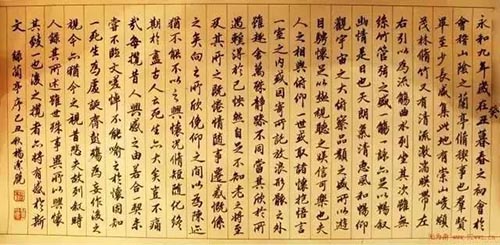 永和九年歲在癸丑暮春之初會於
會稽山陰之蘭亭脩稧事也羣賢
畢至少長咸集此地有崇山峻領
茂林脩竹又有清流激湍暎帶左
右引以為流觴曲水列坐其次雖無
絲竹管弦之盛一觴一詠亦足以暢敘
幽情是日也天朗氣清惠風和暢仰
觀宇宙之大俯察品類之盛所以遊
目騁懷足以極視聽之娛信可樂也夫
人之相與俯仰一世或取諸懷抱悟言
一室之內或因寄所託放浪形骸之外
雖趣舍萬殊靜躁不同當其欣於所
遇暫得於己快然自足不知老之將至
及其所之既惓情隨事遷感慨係
之矣向之所欣俛仰之間以為陳迹
猶不能不以之興懷況脩短隨化終
期於盡古人云死生亦大矣豈不痛
哉每攬昔人興感之由若合一契未
嘗不臨文嗟悼不能喻之於懷固知
一死生為虛誕齊彭殤為妄作後之
視今亦猶今之視昔悲夫故列敘時
人錄其所述雖世殊事異所以興懷
其致一也後之攬者亦將有感於斯
文 錄蘭亭序己丑秋楊